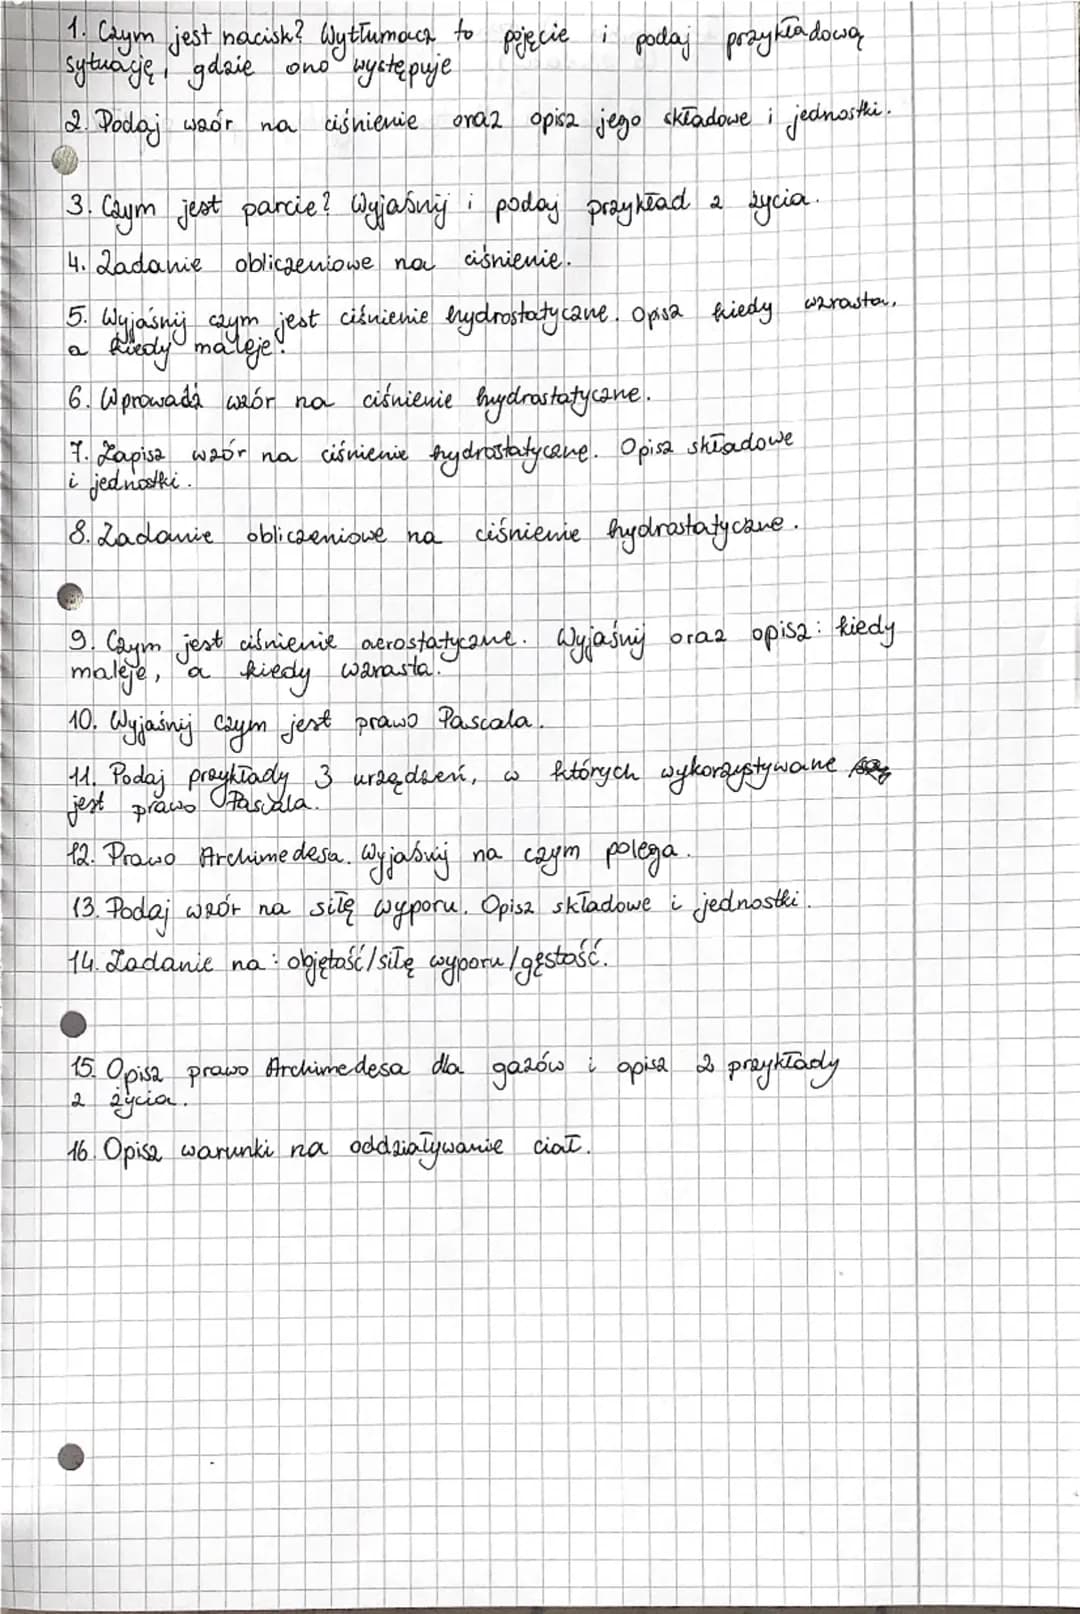 1. Czym jest nacisk? Wytłumacz to pojęcie i podaj przykładową
sytuację, gdzie ono występuje
2. Podaj wzór na ciśnienie oraz opisz jego składowe i jednostki.
3. Czym jest parcie? Wyjaśnij i podaj przykład z życia.
4. Zadanie obliczeniowe na ciśnienie.
5. Wyjaśnij czym jest ciśnienie hydrostatyczne. Opisz kiedy wzrasta,
a kiedy maleje.
6. Wprowadź wzór na ciśnienie hydrostatyczne.
7. Zapisz wzór na ciśnienie hydrostatyczne. Opisz składowe
i jednostki.
8. Zadanie obliczeniowe na ciśnienie hydrostatyczne.
9. Czym jest ciśnienie aerostatyczne. Wyjaśnij oraz opisz: kiedy
maleje, a kiedy wzrasta.
10. Wyjaśnij czym jest prawo Pascala.
11. Podaj przykłady 3 urządzeń, w których wykorzystywane
jest prawo Pascala.
12. Prawo Archimedesa. Wyjaśnij na czym polega.
13. Podaj wzór na siłę wyporu. Opisz składowe i jednostki.
14. Zadanie na: objętość/siłę wyporu/gęstość.
15. Opisz prawo Archimedesa dla gazów i opisz 2 przykłady
z życia.
16. Opisz warunki na oddziaływanie ciał.